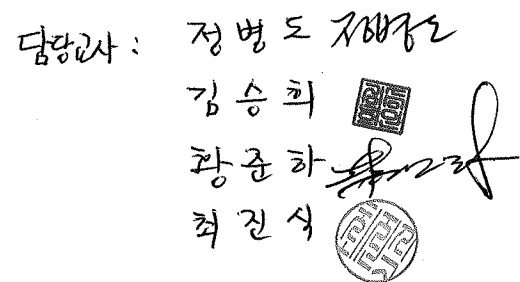 담당교사 : 정병도 정병도
김승희
황준하
최진식